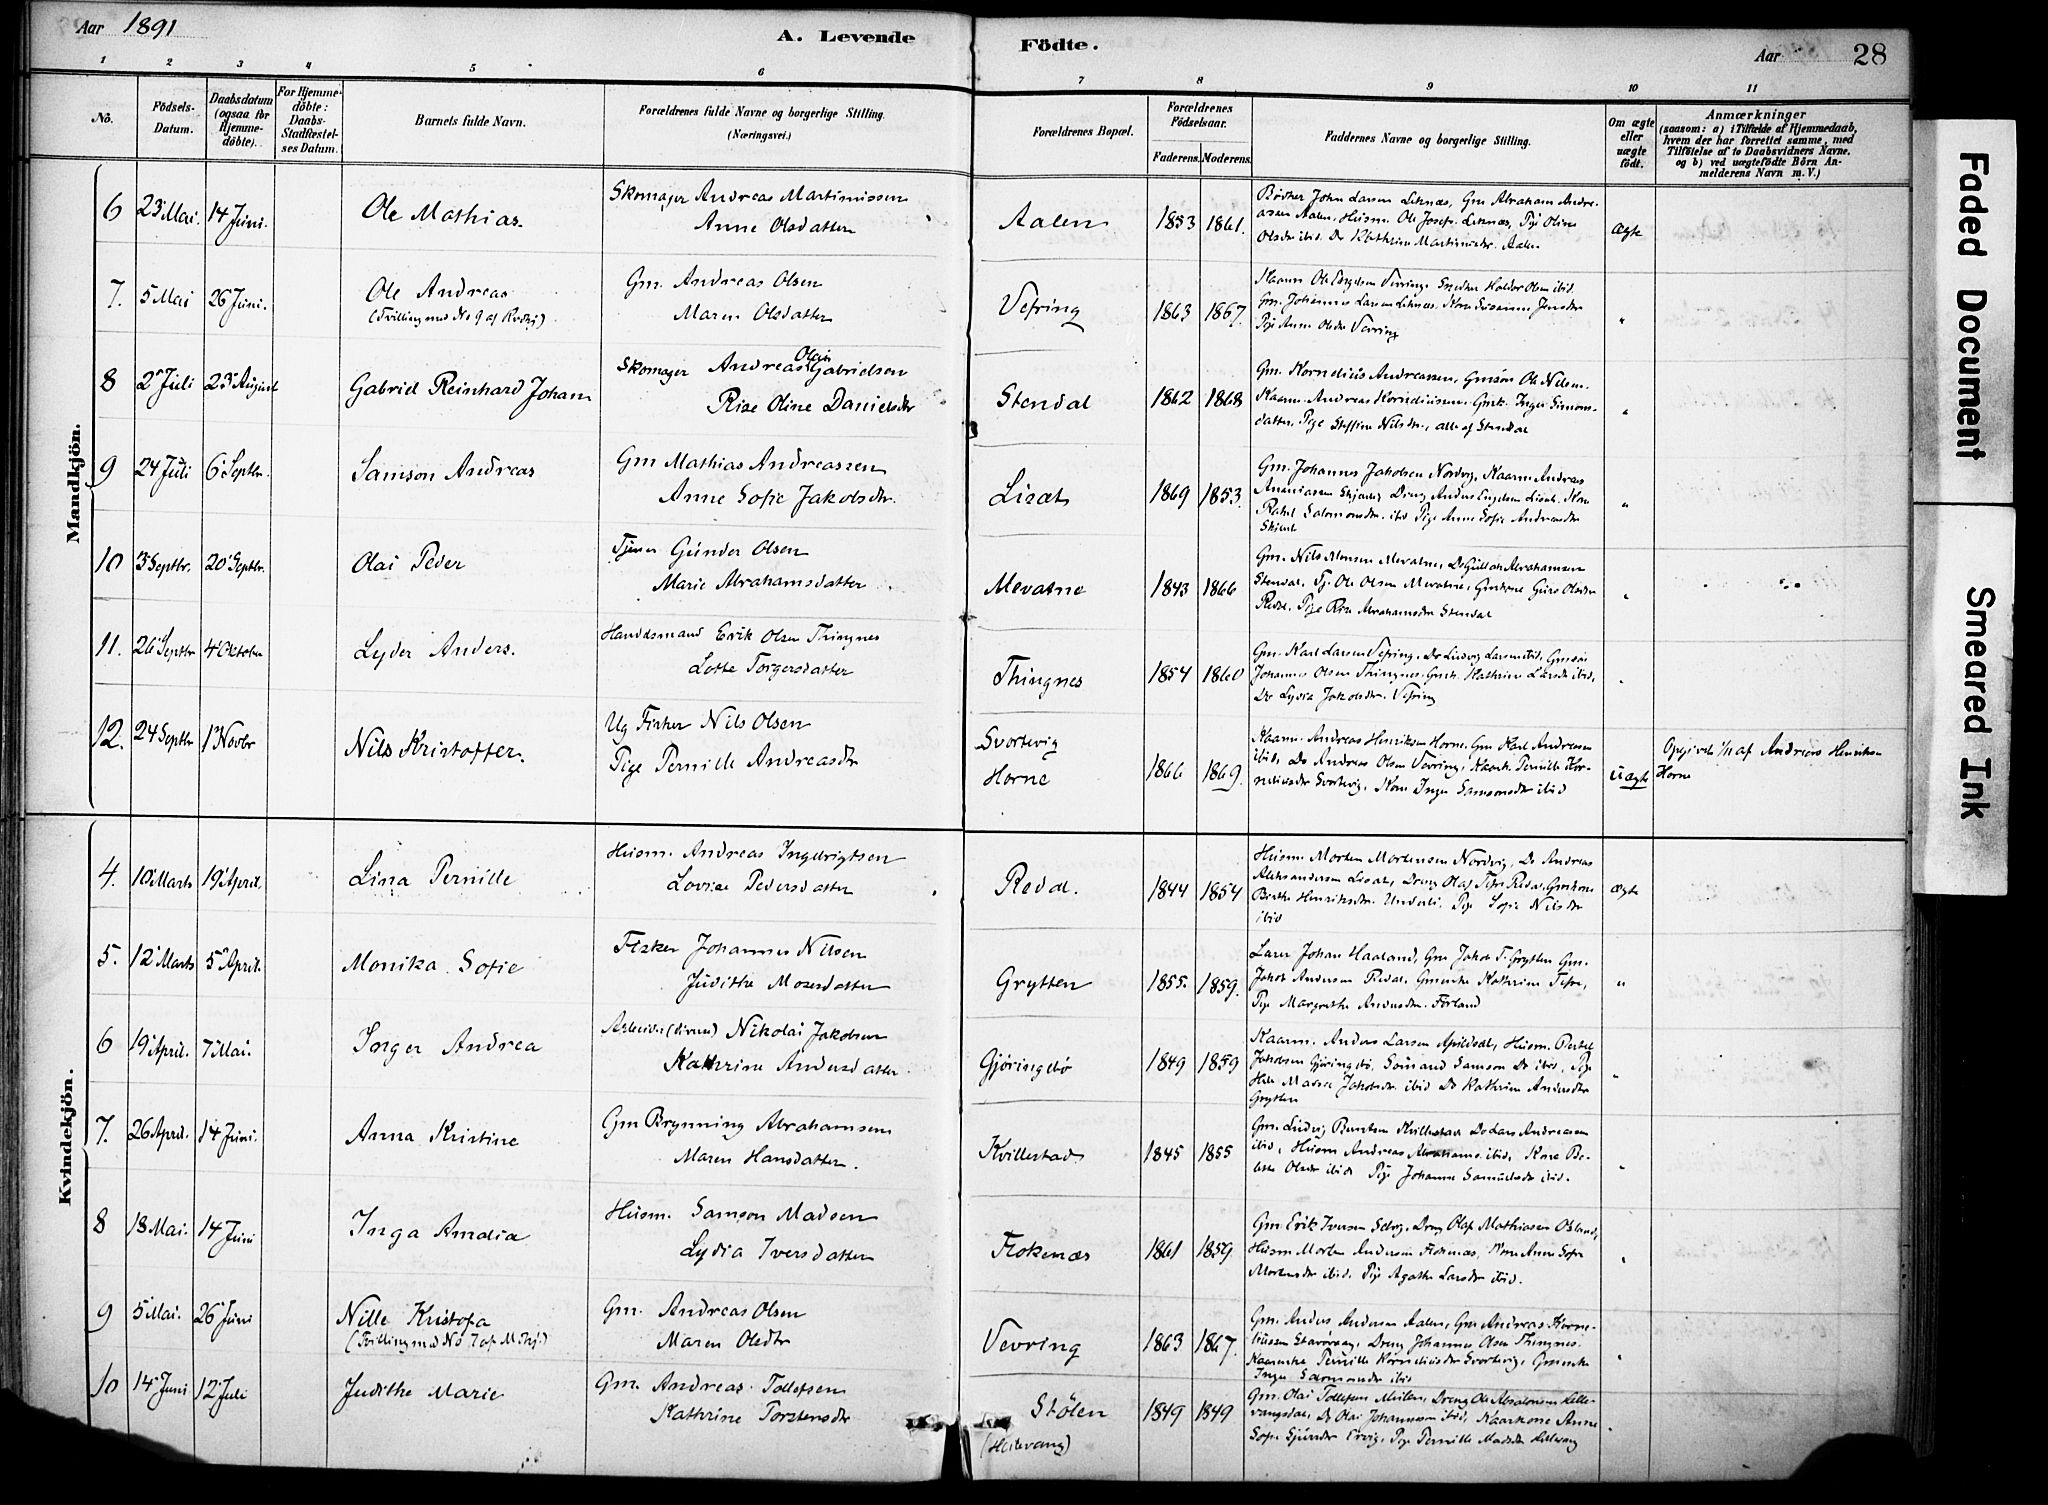 Aar 1891
A. Levende Födte.
Aar
28
1 2 3 4 5 6 7 8 9 10 11
No.
Födsels-Datum.
Daabsdatum (ogsaa for Hjemmedöbte).
For Hjemmedöbte: Daabs-Stadfæstelses Datum.
Barnets fulde Navn.
Forældrenes fulde Navne og borgerlige Stilling. (Næringsvei.)
Forældrenes Bopæl.
Forældrenes Födselsaar.
Faderens. Moderens.
Faddernes Navne og borgerlige Stilling.
Om ægte eller uægte födt.
Anmærkninger
(saasom: a) i Tilfælde af Hjemmedaab, hvem der har forrettet samme, med Tilföielse af to Daabsvidners Navne, og b) ved uægtefödte Börn Anmelderens Navn m. V.)
Mandkjön.
6 23 Mai. 14 Juni. Ole Mathias. Skomager Andreas Martinussen
Anne Olsdatter Aalen 1853 1861. Bødker John Larsen Leknæs, Gm Abraham Andreassen Aalen, Husm. Ole Josef. Leknæs, Pige Oline Olsdtr ibid. Do Kathrine Martinusdtr. Aalen ægte
7. 5 Mai 26 Juni. Ole Andreas
(Tvilling med No 9 af Kvdkj) Gm. Andreas Olsen
Maren Olsdatter Vefring 1863 1867. Gm. Johannes Larsen Leknæs. Kone Susanne Jensdtr
Pige Anne Olsdtr Vevring "
8 2 Juli 23 August Gabriel Reinhard Johan Skomager Andreas Olai Gabrielsen
Rise Oline Danielsdtr Stendal 1862 1868 Gm. Kornelius Andreassen, Gmsøn Ole Nilsen.
Kaarm. Andreas Korneliussen. Gmk. Inger Simonsdatter, Pige Steffine Nilsdtr., alle af Stendal "
9 24 Juli 6 Septbr. Samson Andreas Gm Mathias Andreassen
Anne Sofie Jakobsdtr. Lisæt 1869 1853. Gm. Johannes Jakobsen Nordvig, Kaarm Andreas
Ananiassen
Rakel Salomonsdtr. ibid Pige Anne Sofie Andreasdtr "
10 3 Septbr. 20 Septbr. Olai Peder Tjener Gunder Olsen
Marie Abrahamsdatter Mevatne 1843 1866 Gm. Nils Monsen Mevatne, Do Gullak Abrahamsen
Stendal, Tj. Ole Olsen Mevatne, Gmkone Guro Olsdtr
Redal, Pige Rise Abrahamsdtr Stendal "
11. 26 Septbr 4 Oktober Lyder Anders. Handelsmand Erik Olsen Thingnes
Lotte Torgersdatter Thingnes 1854 1860 Gm. Karl Larsen Vefring, Do Ludvig Larsen ibid, Gmsøn
Johannes Olsen Thingnes. Gmk. Kathrine Larsdtr ibid,
Do Lydia Jakobsdtr. Vefring
12. 24 Septbr 1 Novbr Nils Kristoffer. Ug Fisker Nils Olsen
Pige Pernille Andreasdtr Svortevig
Horne 1866 1869. Kaarm. Andreas Henriksen Horne. Gm Karl Andreasen
ibid, Do Andreas Olsen Vevring, Kaark. Pernille Korneliusdtr Svortevig, Kone Inger Samsonsdtr ibid uægte Opgivet 1/11 af Andreas Henriksen
Horne
Kvindekjön.
4. 10 Marts 19 April. Lina Pernille Husm. Andreas Ingebrigtsen
Lovise Pedersdatter Redal. 1844 1854 Husm. Morten Mortensen Nordvig, Do Andreas
Aleksandersen Lisæt, Dreng Olaf Tefre Redal, Gmkone
Berthe Henriksdtr. Underli. Pige Sofie Nilsdtr
ibid ægte
5. 12 Marts 5 April. Monika Sofie Fisker Johannes Nilsen
Judithe Mosesdatter Grytten 1855. 1859. Lærer Johan Haaland, Gm Jakob T. Grytten Gm.
Jakob Andersen Redal, Gmenke Kathrine Tefre,
Pige Margrethe Andersdtr. Førland "
6 19 April. 7 Mai. Inger Andrea Arbeider (diverse) Nikolai Jakobsen
Kathrine Andersdatter. Gjøringbø 1849 1859 Kaarm. Anders Larsen Husm. Bertel
Jakobsen Gjøringbø, Sømand Samson Do ibid, Pige
Jakobsdtr. ibid Do Kathrine Andersdtr
Grytten "
7. 26 April. 14 Juni. Anna Kristine Gm Brynning Abrahamsen
Maren Hansdatter. Kvillestad 1845 1855 Gm. Ludvig Berntsen Kvillestad Do Lars Andreasen
ibid, Husm Andreas ibid, Kone
Olsdtr ibid Pige Johanne Samuelsdtr ibid. "
8 18 Mai. 14 Juni Inga Amalia Husm. Samson Madsen
Lydia Iversdatter Flokenæs 1861 1859. Gm. Erik Iversen Dreng Olaf Mathiasen Osland,
Husm Morten Andersen Flokenæs, Kone Anne Sofie
Mortensdtr ibid. Pige Agathe Larsdtr ibid. "
9 5 Mai. 26 Juni Nille Kristofa
(Tvilling med No 7 af M.Kkj.) Gm. Andreas Olsen
Maren Olsdtr Vevring 1863 1867. Gm. Anders Andersen Aalen, Gm Andreas Korneliussen Dreng Johannes Olsen Thingnes.
Kaarenke Pernille Korneliusdtr Svortevig, Gmenke
Inger Salomonsdtr ibid "
10 14 Juni 12 Juli Judithe Marie Gm. Andreas Tollefsen
Kathrine Torstensdtr Stølen
(Heilevang) 1849 1849 Gm. Olai Tollefsen Dreng Ole Absalonsen Lillevangsdal, Do Olai Johannessen ibid, Kaarkone Anne
Sofie Ervig, Pige Pernille Madsdtr
Faded Document
Smeared Ink